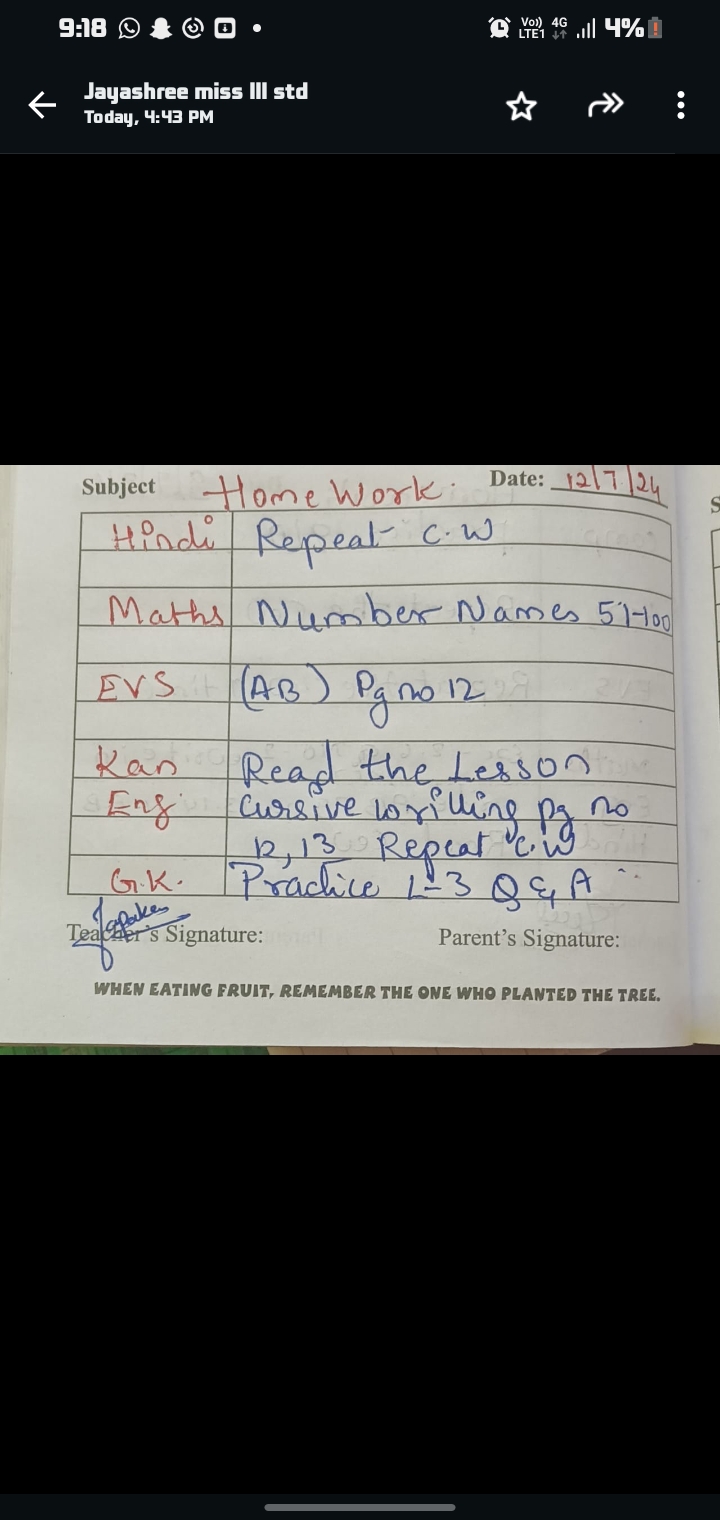 9:18 Vo)) LTE1 4G 4%
Jayashree miss III std
Today, 4:43 PM
Subject Home Work. Date: 12/7/24
Hindi Repeat C.W
Maths Number Names 51-100
EVS (AB) Pg no 12
Kan Read the Lesson
Eng Cursive writting pg no
12, 13 Repeat C.W
G.K. Practice L-3 Q & A
Teacher's Signature: Parent's Signature:
WHEN EATING FRUIT, REMEMBER THE ONE WHO PLANTED THE TREE.